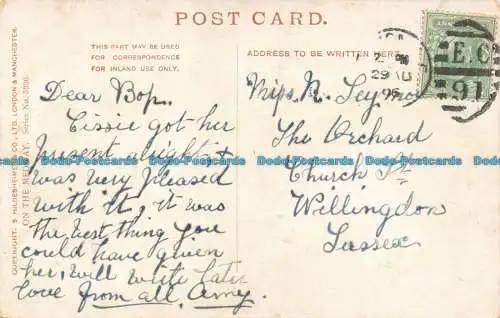 POST CARD.
THIS PART MAY BE USED
FOR CORRESPONDENCE
FOR INLAND USE ONLY.
ADDRESS TO BE WRITTEN HERE
29 AU
E.C
91
Dear Bop.
Cissie got her
present alright &
was very pleased
with it, it was
the best thing you
could have given
her, will write later
love from all. Amy.
Miss N. Seymour
The Orchard
Church St
Willingdon
Sussex
COPYRIGHT. S. HILDESHEIMER & CO., LTD. LONDON & MANCHESTER.
ON THE MEDWAY. Series No.